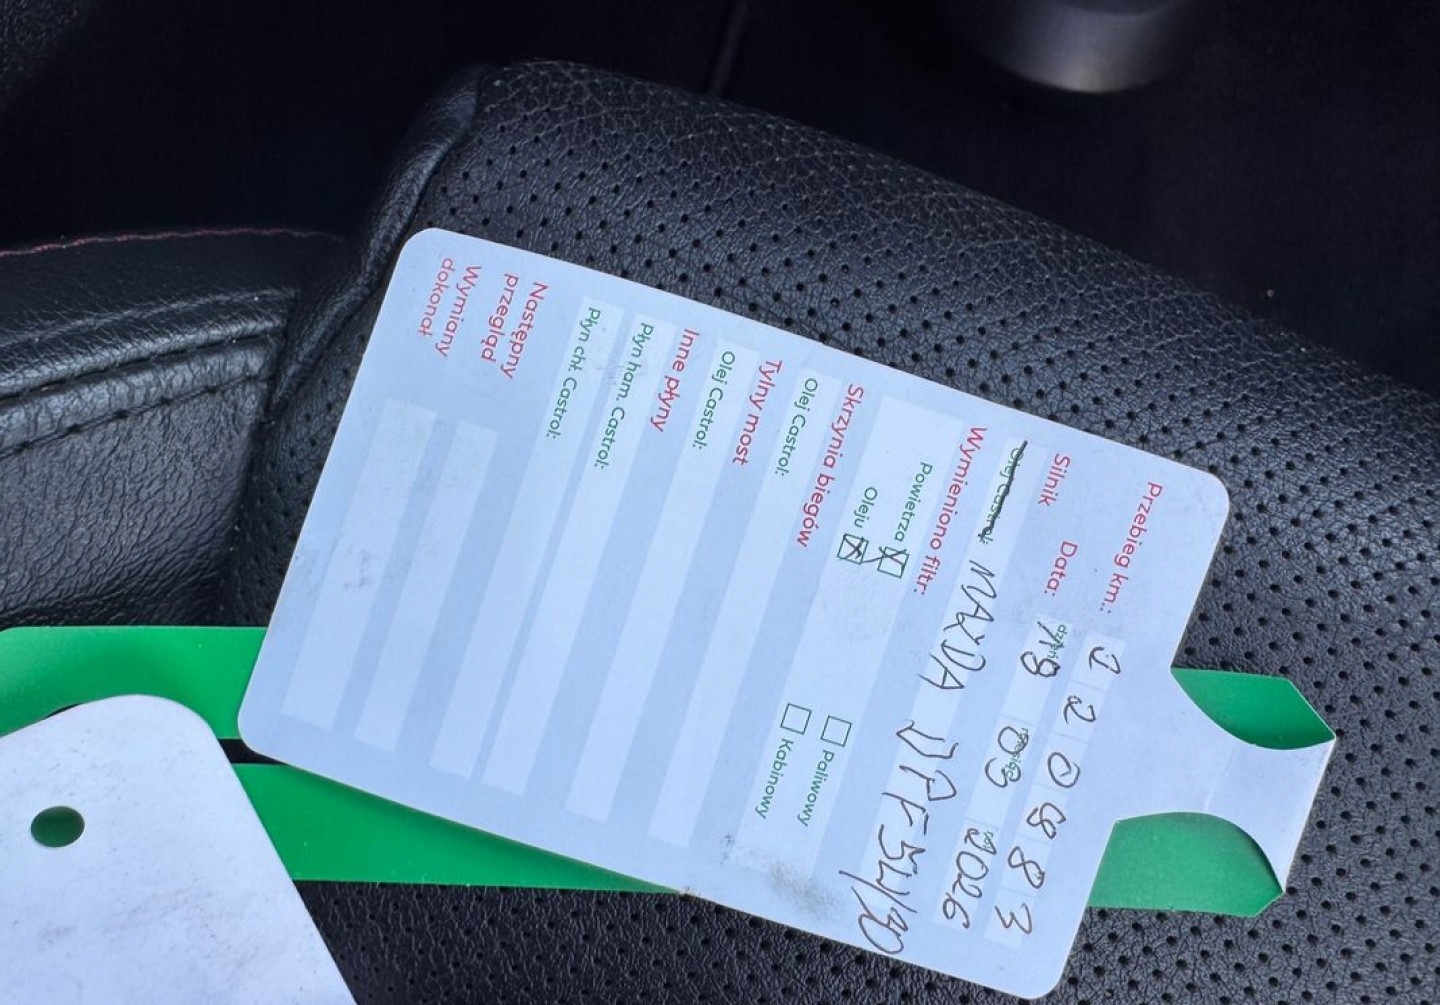 Przebieg km.: 220883
Silnik Data: dzień 18 miesiąc 03 rok 2026
Olej Castrol: MAZDA DPF 5W30
Wymieniono filtr:
Powietrza Paliwowy
Oleju Kabinowy
Skrzynia biegów
Olej Castrol:
Tylny most
Olej Castrol:
Inne płyny
Płyn ham. Castrol:
Płyn chł. Castrol:
Następny
przegląd
Wymiany
dokonał